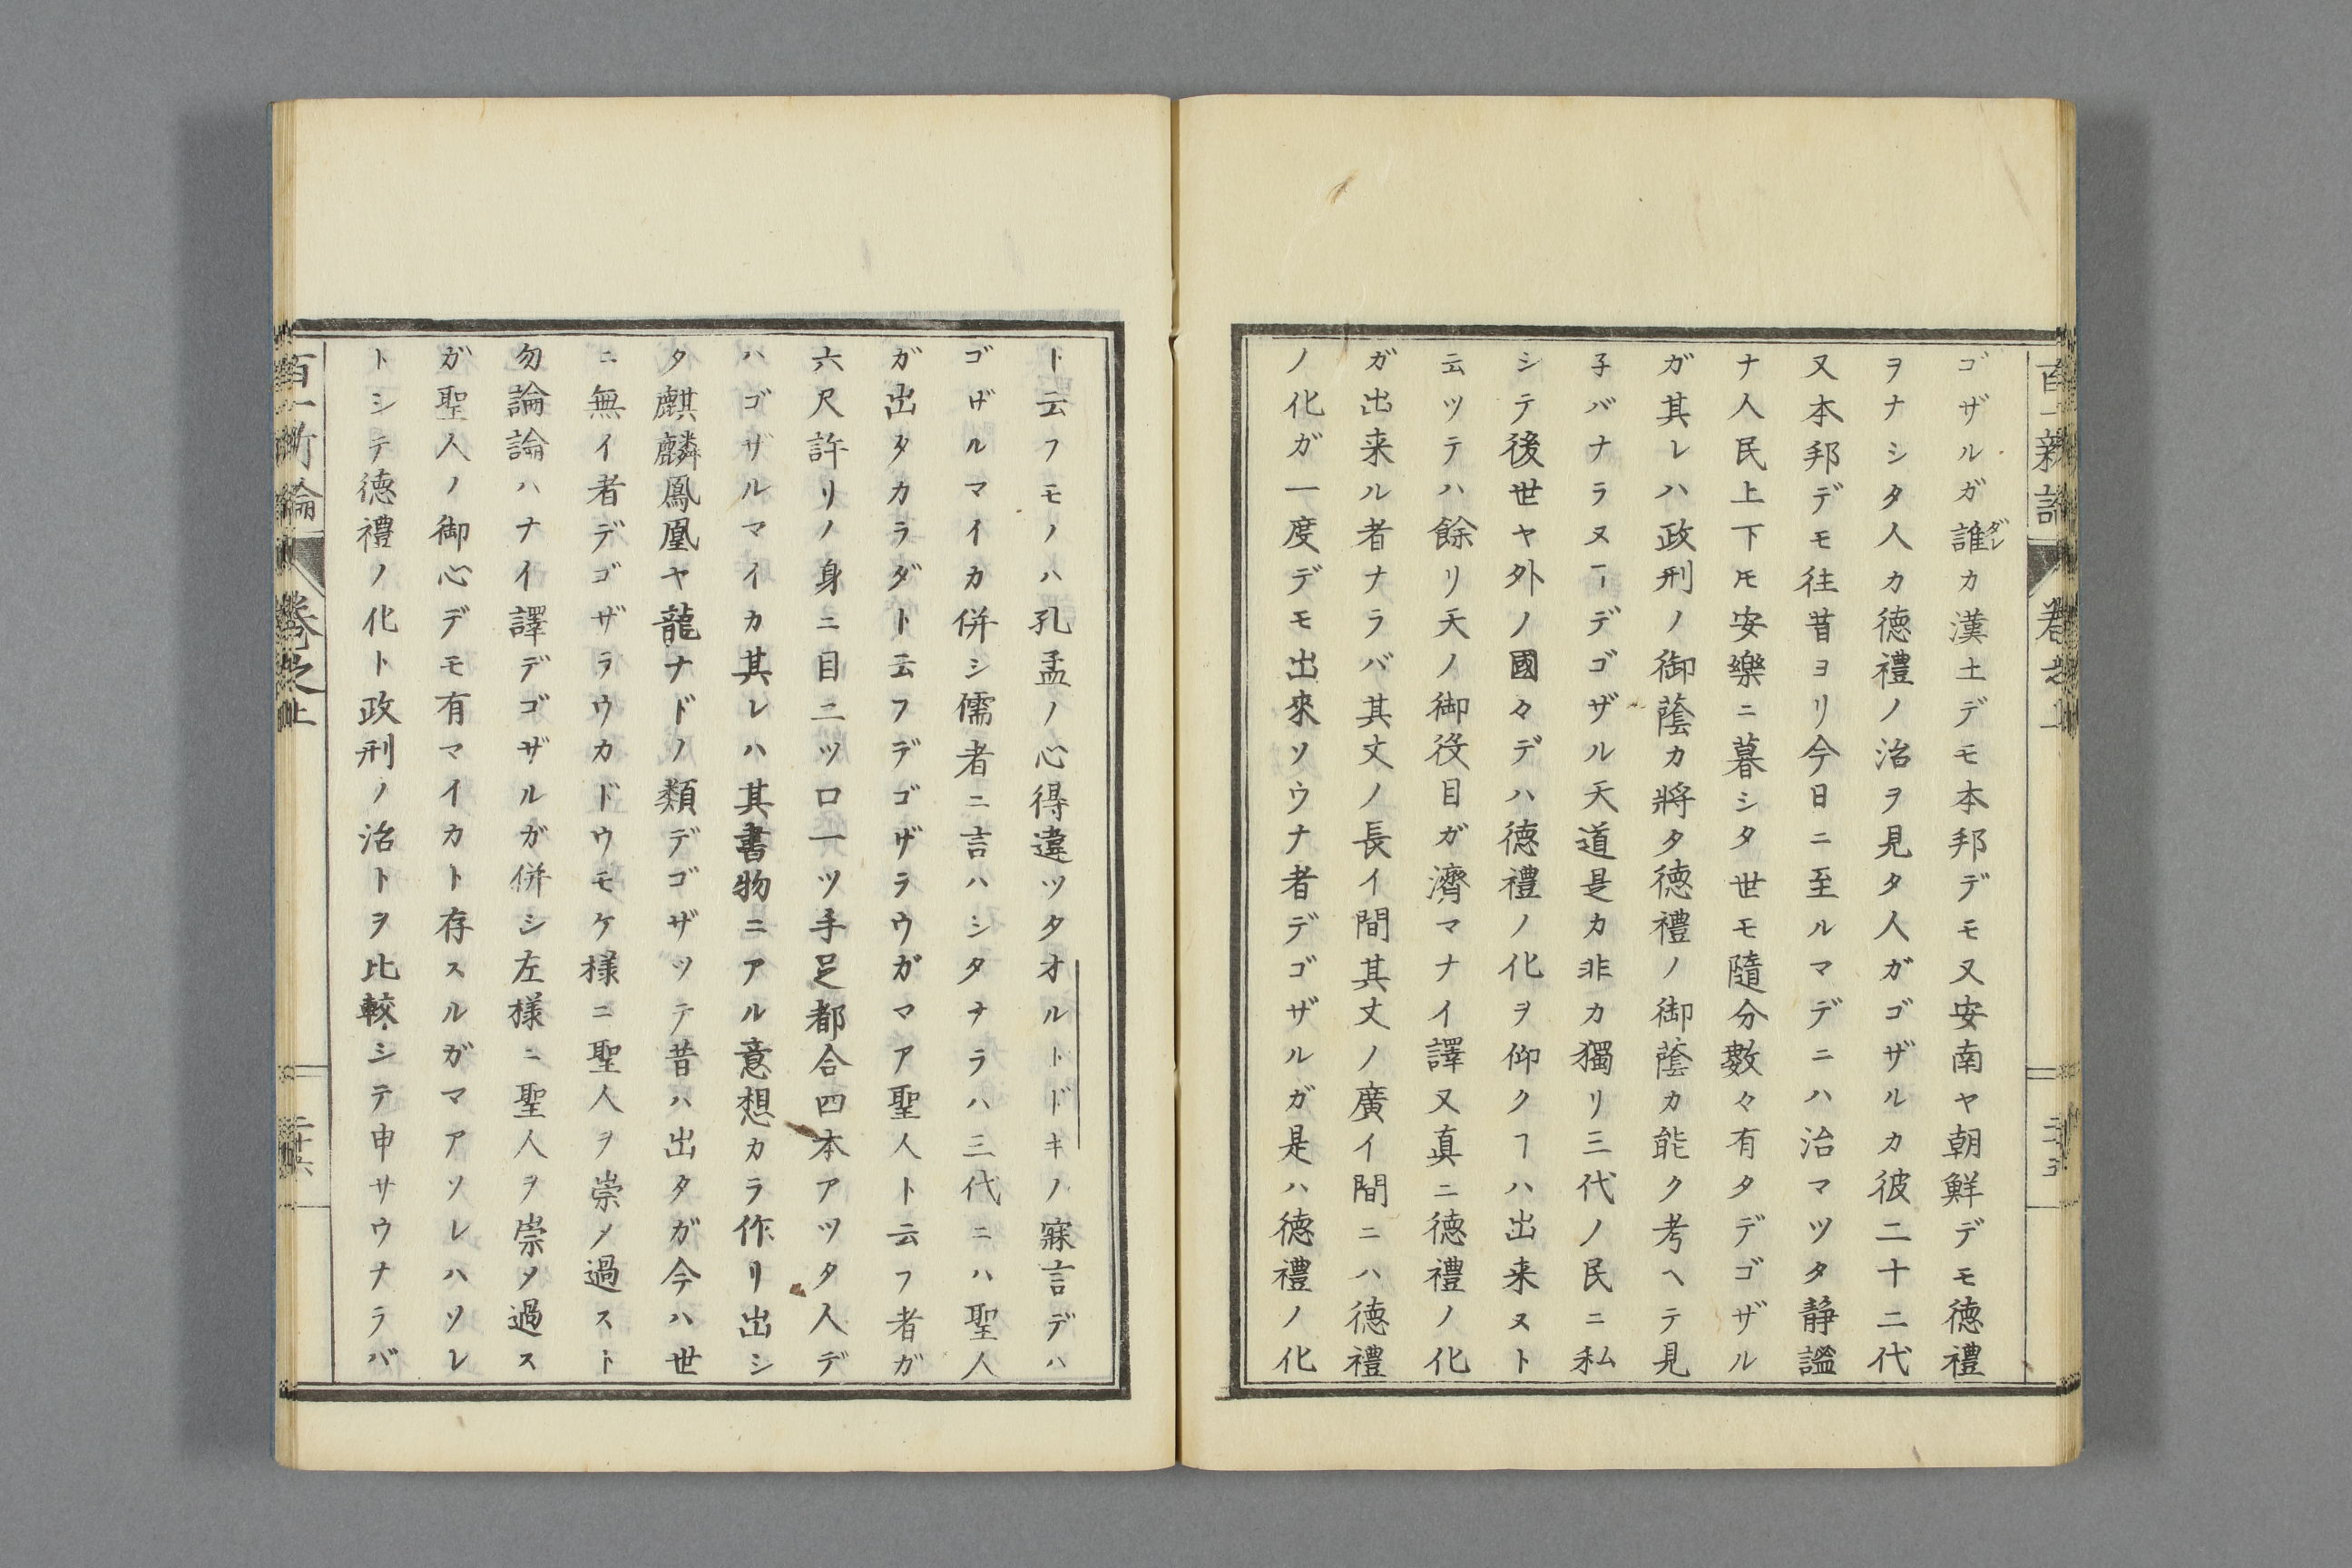 百一新論 卷之上
ゴザルガ誰カ漢土デモ本邦デモ又安南ヤ朝鮮デモ徳禮
ダレ
ヲナシタ人カ徳禮ノ治ヲ見タ人ガゴザルカ彼二十二代
又本邦デモ往昔ヨリ今日ニ至ルマデニハ治マツタ靜謐
ナ人民上下モ安樂ニ暮シタ世モ隨分數々有タデゴザル
ガ其レハ政刑ノ御蔭カ將タ徳禮ノ御蔭カ能ク考ヘテ見
子バナラヌヿデゴザル天道是カ非カ獨リ三代ノ民ニ私
シテ後世ヤ外ノ國々デハ徳禮ノ化ヲ仰クヿハ出来ヌト
云ツテハ餘リ天ノ御役目ガ濟マナイ譯又真ニ徳禮ノ化
ガ出来ル者ナラバ其丈ノ長イ間其丈ノ廣イ間ニハ徳禮
ノ化ガ一度デモ出來ソウナ者デゴザルガ是ハ徳禮ノ化
ト云フモノハ孔孟ノ心得違ツタオルトドキノ寐言デハ
ゴザルマイカ併シ儒者ニ言ハシタナラハ三代ニハ聖人
ガ出タカラダト云フデゴザラウガマア聖人ト云フ者ガ
六尺許リノ身ニ目二ツ口一ツ手足都合四本アツタ人デ
ハゴザルマイカ其レハ其書物ニアル意想カラ作リ出シ
タ麒麟鳳凰ヤ龍ナドノ類デゴザツテ昔ハ出タガ今ハ世
ニ無イ者デゴザラウカドウモケ様ニ聖人ヲ崇メ過スト
勿論論ハナイ譯デゴザルガ併シ左樣ニ聖人ヲ崇メ過ス
ガ聖人ノ御心デモ有マイカト存スルガマアソレハソレ
トシテ徳禮ノ化ト政刑ノ治トヲ比較シテ申サウナラバ
百一新論 卷之上